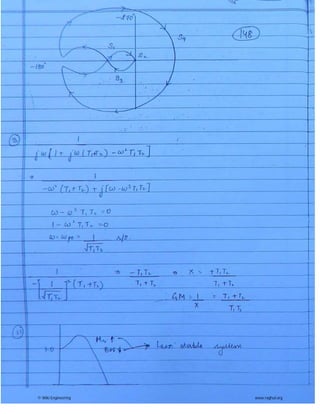 -270°
(148)
S₁
S₂
S₄
-180°
S₃
1
jω[1 + jω(T₁+T₂) - ω²T₁T₂]
1
-ω²(T₁+T₂) + j[ω - ω³T₁T₂]
ω - ω³T₁T₂ = 0
1 - ω²T₁T₂ = 0
ω = ωpc = 1/√T₁T₂ r/s.
1 / -[1/√T₁T₂]²(T₁+T₂) ⇒ -T₁T₂/T₁+T₂ ⇒ X = +T₁T₂/T₁+T₂
GM = 1/X = T₁+T₂/T₁T₂
1.0
Mr ↑
BW ↓
Less stable system
© Wiki Engineering
www.raghul.org